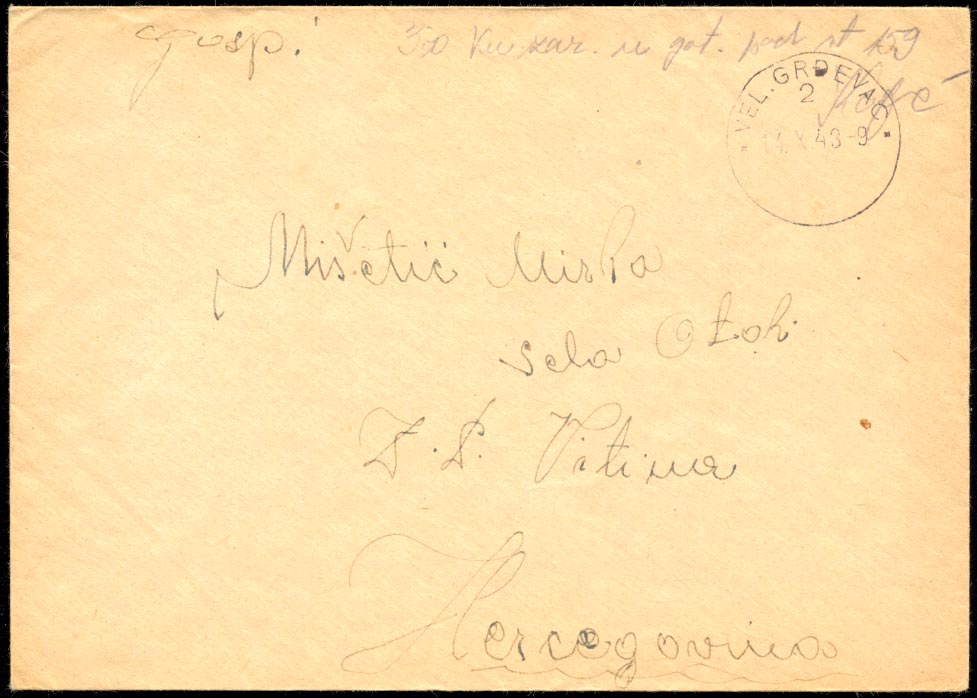 Gosp.!
350 Kn zar. u got. pod st 159
VEL. GRĐEVAC
2
11.X.43-9
Mišetić Mirka
sela Otok
Z.P. Vitina
Hercegovina